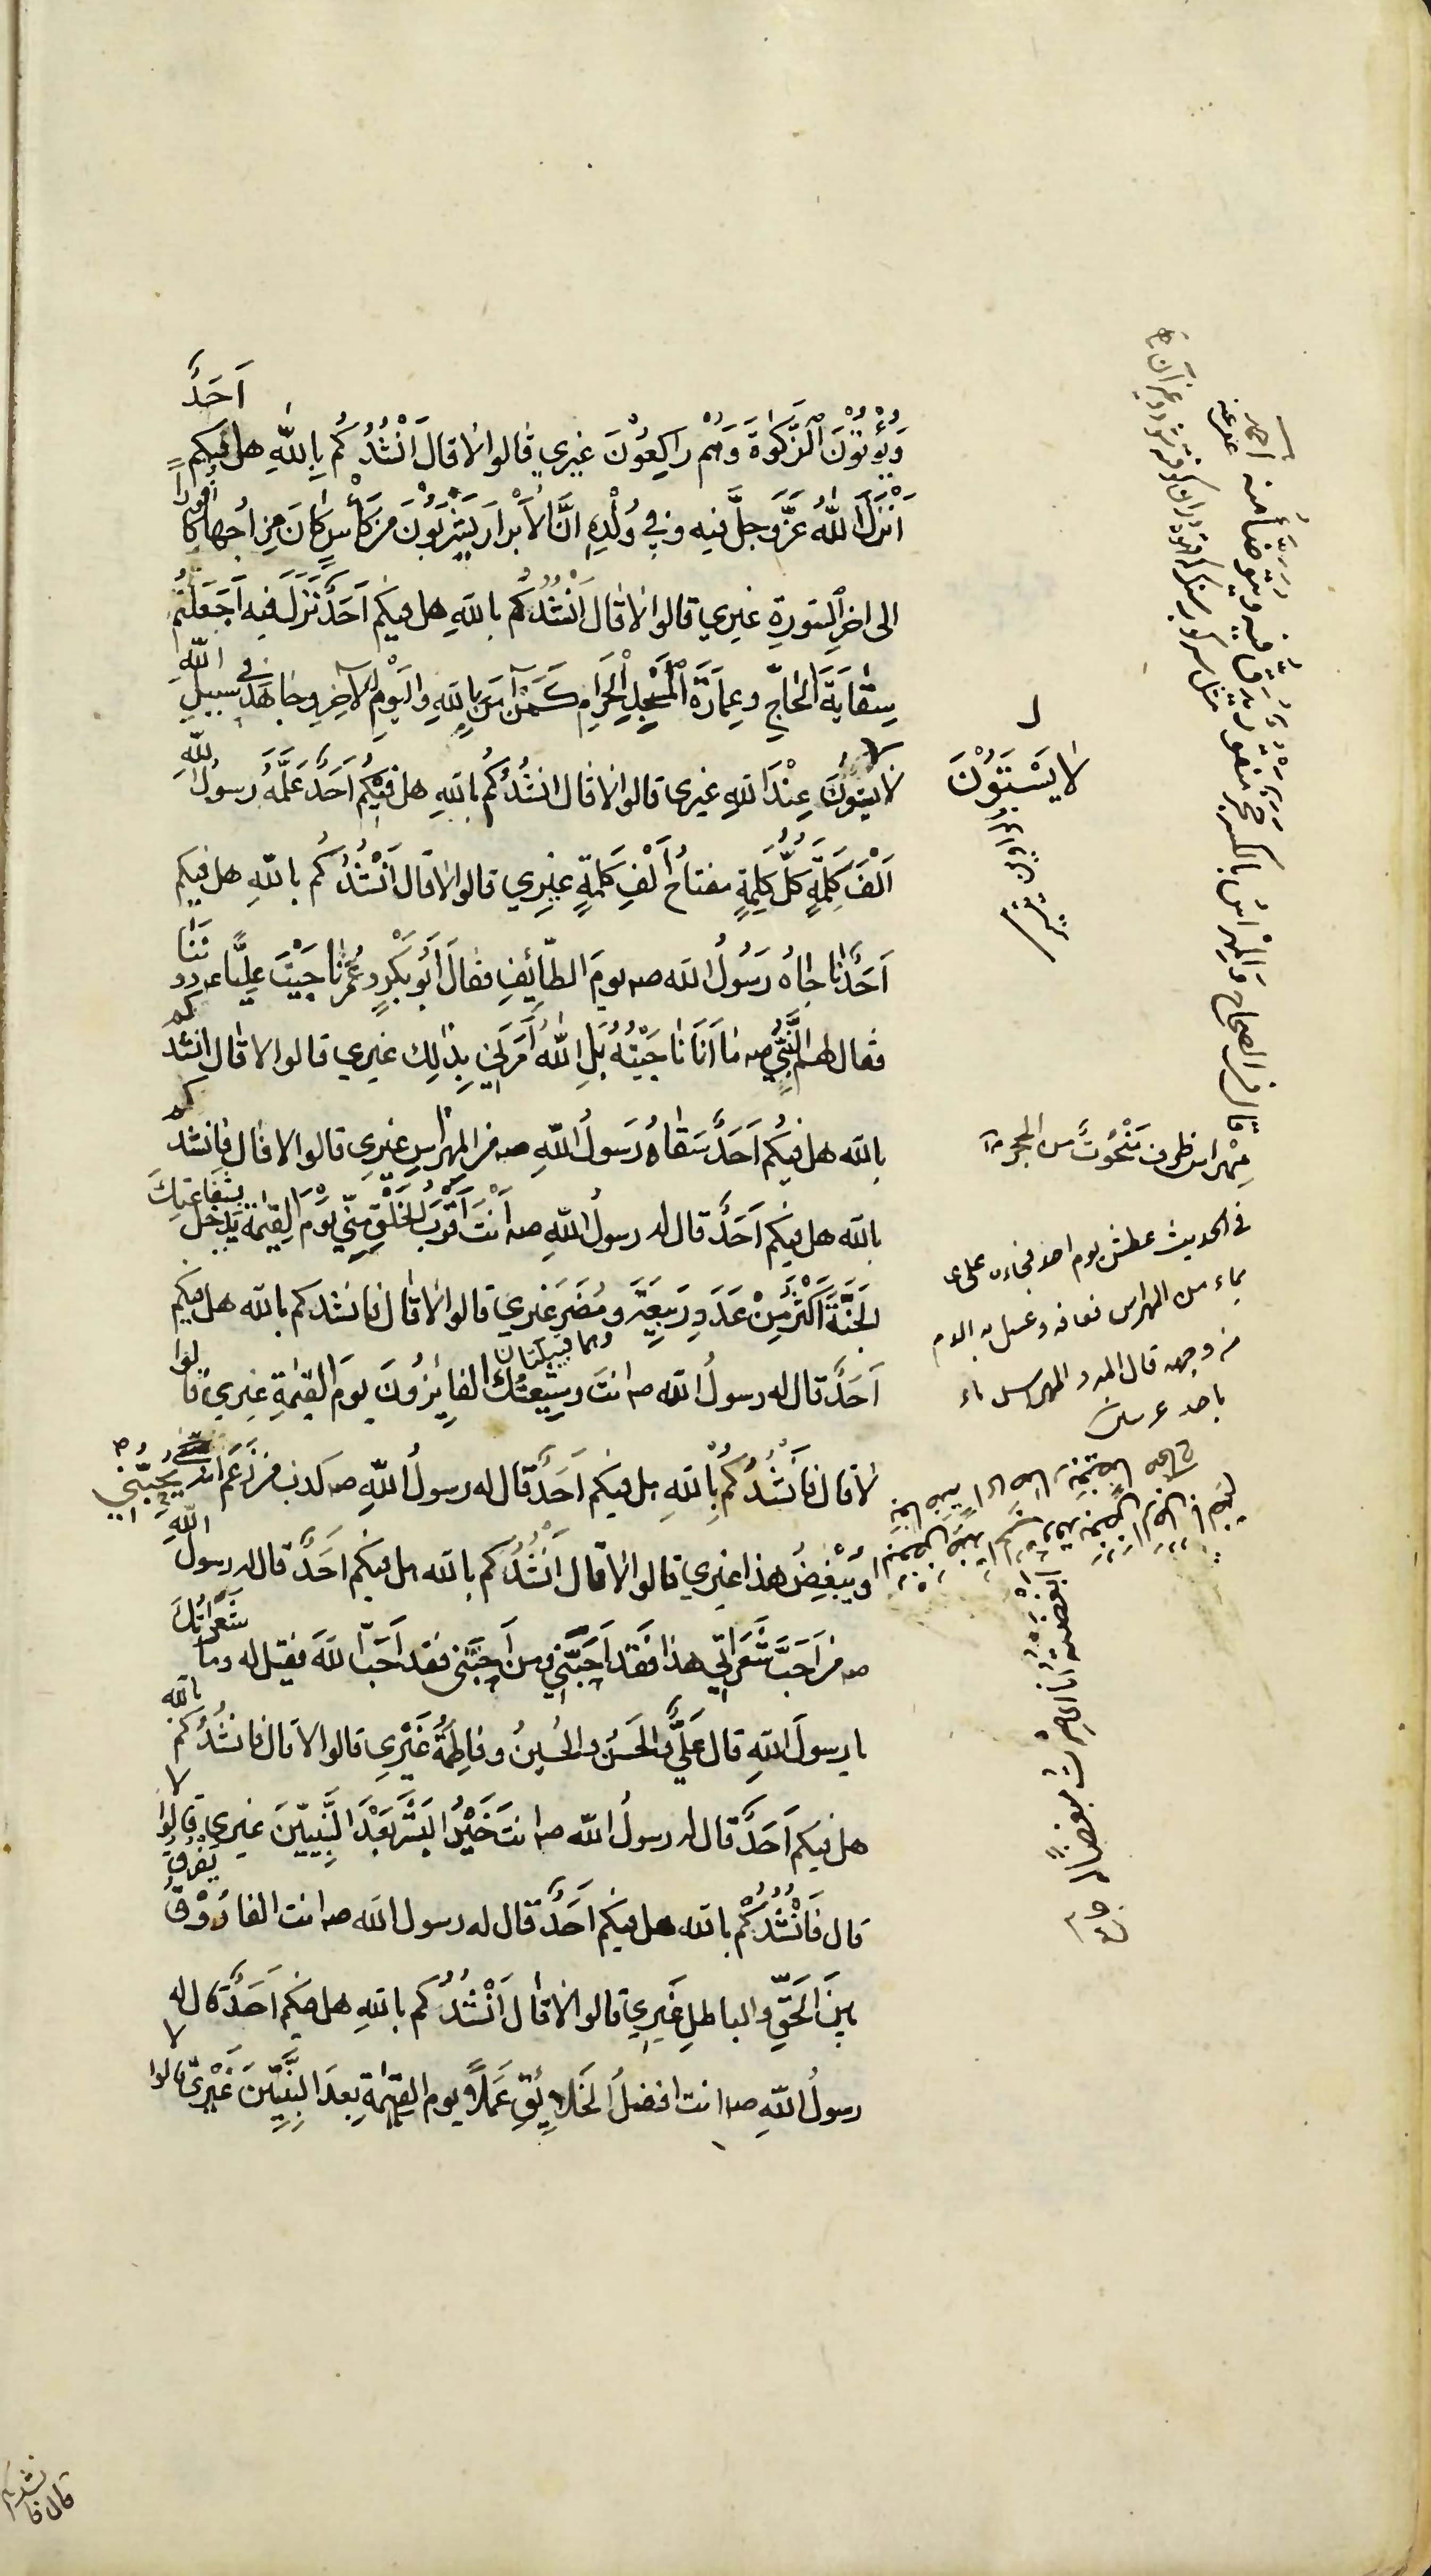 وَيُؤْتُوْنَ الزَّكوٰةَ وَهُمْ رَاكِعُوْنَ غيري قالوا لا قال اَنْشُدُكُم بِاللهِ هل فيكم اَحَدٌ
اَنْزَلَ اللهُ عَزَّ وجلَّ فيه وفي وُلْدِهِ اِنَّ الاَبْرَارَ يَشْرَبُوْنَ مِن كَأْسٍ كَانَ مِزَاجُها كافورا
الى اخرِ السّورةِ غيري قالوا لا قال اَنْشُدُكُم بالله هل فيكم اَحَدٌ نَزَلَ فيه اَجَعَلْتُم
سِقَايَةَ الحَاجِّ وعِمَارَةَ الْمَسْجِدِ الْحَرَامِ كَمَنْ آمَنَ بِاللهِ واليَوْمِ الآخِرِ وجَاهَدَ في سبيلِ اللهِ
لا يستوُنَ عِنْدَ اللهِ غيري قالوا لا قال انشُدُكُم باللهِ هل فيكُم اَحَدٌ عَلَّمَهُ رسولُ اللهِ
اَلْفَ كَلِمَةٍ كُلُّ كَلِمَةٍ مفتاحُ اَلْفِ كَلمةٍ غيري قالوا لا قال اَنْشُدُكُم باللهِ هل فيكم
اَحَدٌ نَاجَاهُ رَسُولُ الله صه يومَ الطّائِفِ فقالَ اَبُو بَكْرٍ وعُمَرُ نَاجَيْتَ عليًّا دوننا
فقال لهم النَّبِيُّ صه مَا اَنَا نَاجَيْتُهُ بَلِ اللهُ اَمَرَنِي بِذٰلِكَ غيري قالوا لا قال انشدكم
بالله هل فيكُم اَحَدٌ سَقَاهُ رَسولُ اللهِ صه من المِهْرَاسِ غيري قالوا لا قال فانشدكم
بالله هل فيكم اَحَدٌ قال له رسولُ اللهِ صه اَنْتَ اَقْرَبُ الخَلْقِ مِنِّي يَوْمَ القِيٰمَة يَدخُلُ بِشَفَاعَتِكَ
الجَنَّةَ اَكْثَرُ مِنْ عَدَدِ رَبِيعَةَ ومُضَرَ غيري قالوا لا قال فانشدكم بالله هل فيكم
وهما قبيلتان
اَحَدٌ قال له رسولُ الله صه انتَ وشِيْعَتُكَ الفائِزُونَ يومَ القيٰمةِ غيري قالوا
لا قال فَأَنْشُدُكُم بِاللهِ هل فيكم اَحَدٌ قال له رسولُ اللهِ صه كذب من زَعَمَ انّه يُحِبُّني
ويُبْغِضُ هذا غيري قالوا لا قال اَنْشُدُكم بالله هل فيكم احَدٌ قال له رسولُ اللهِ
صه من اَحَبَّ شَعَرَاتي هذا فَقَد اَحَبَّنِي ومن اَحَبَّني فقد اَحَبَّ اللهَ فقيل له وما شَعَرَاتُكَ
يا رسولَ اللهِ قال عَلِيٌّ والحَسَنُ والحُسينُ وفاطِمَةُ غَيْرِي قالوا لا قال فانشُدُكم باللهِ
هل فيكم اَحَدٌ قال له رسولُ الله صه انتَ خَيْرُ البَشَرِ بَعْدَ النَّبِيِّينَ غيري قالوا لا
قال فَاَنْشُدُكُمْ بالله هل فيكم اَحَدٌ قال له رسول الله صه انت الفَارُوْقُ يَفْرُقُ
بينَ الحَقِّ والباطلِ غَيرِي قالوا لا قال اَنْشُدُكُم باللهِ هل فيكم اَحَدٌ قال له
رسولُ اللهِ صه انت افضلُ الخَلايِقِ عَمَلاً يوم القيٰمةِ بعدَ النَّبِيِّينَ غَيْرِي قالوا لا
لا يَسْتَوُوْنَ
قال في الصحاح والمِهْرَاسُ بالكسر حجر منقور يُدَقُّ فيه ويتوضأ منه
مِهْراس ظرف مَنْحُوْتٌ من الحجر
في الحديث عطش يوم احد فجاءه علي ع
بماء من المهراس فعافه وغسل به الدم
من وجهه قال المبرد المهراس ماء
باحد
قال فانشدكم